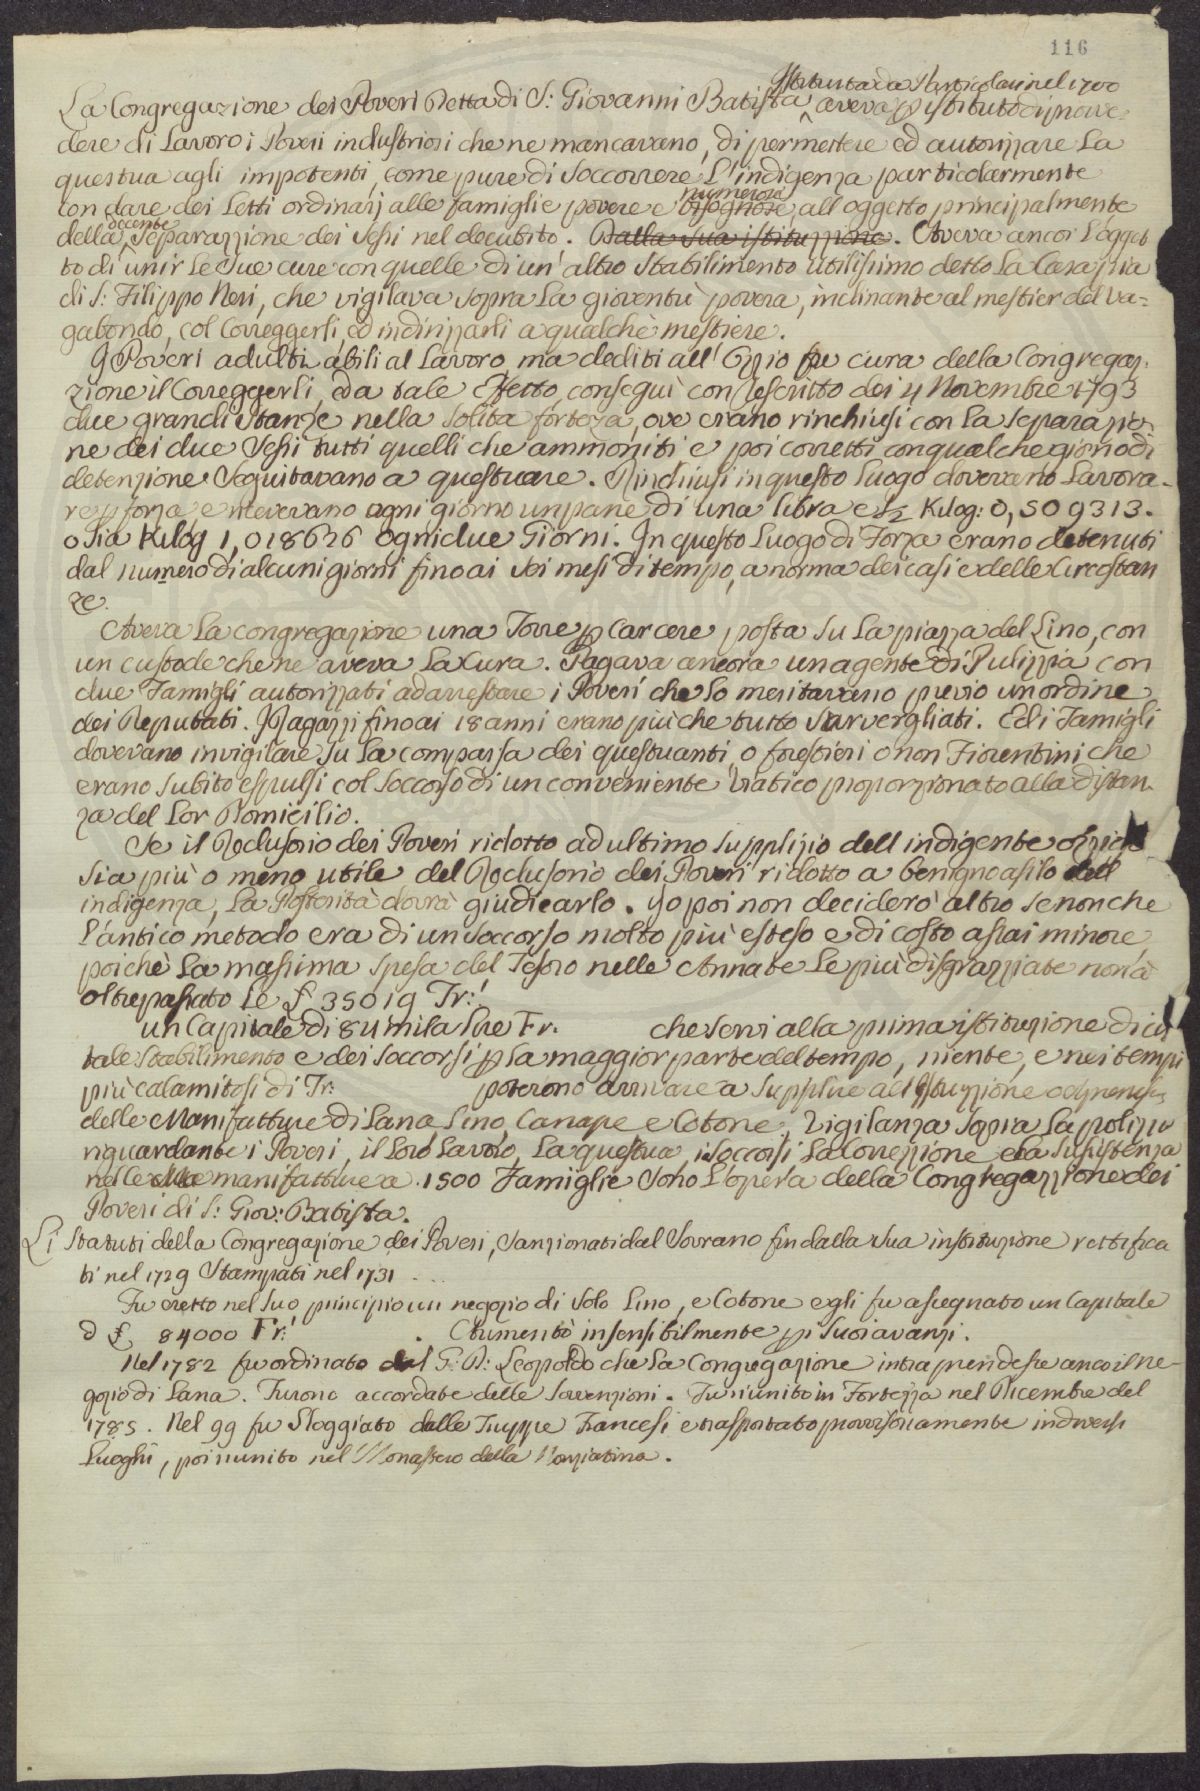 116
Istituita da Particolari nel 1700
La Congregazione dei Poveri Detta di S: Giovanni Batista aveva p istituto di prove-
dere di Lavoro i Poveri industriosi che ne mancavano, di permettere ed autorizzare La
questua agli impotenti, come pure di Soccorrere L'indigenza particolarmente
numerose
con dare dei Letti ordinarj alle famiglie povere e bisognose, all'oggetto principalmente
decente
della Separazzione dei Sessi nel decubito. Dalla sua istituzzione. Aveva ancor L'ogget
to di unir Le Sue cure con quelle di un'altro Stabilimento utilissimo detto La Casa pia
di S: Filippo Neri, che vigilava sopra La gioventù povera, inclinante al mestier del va=
gabondo, col Correggerli, ed indirizzarli a qualchè mestiere.
I Poveri adulti abili al Lavoro, ma dediti all'Ozzio fu cura della Congregaz-
zione il Correggerli, ed a tale Effetto conseguì con Rescritto dei 4 Novembre 1793
due grandi Stanze nella Solita fortezza, ove erano rinchiusi con La Separazio-
ne dei due Sessi tutti quelli che ammoniti e poi corretti con qualche giorno di
detenzione Seguitavano a questuare. Rinchiusi in questo Luogo dovevano Lavora-
re p forza e ricevevano ogni giorno un pane di una libra e 1/2 Kilog: 0,509313.
o Sia Kilog 1,018626 ogni due Giorni. In questo Luogo di Forza erano detenuti
dal numero di alcuni giorni fino ai Sei mesi di tempo, a norma dei casi e delle Circostan
ze.
Aveva La Congregazione una Torre p Carcere posta Su La piazza del Lino, con
un custode che ne aveva La Cura. Pagava ancora un agente di Pulizzia con
due Famigli autorizzati ad arrestare i Poveri che Lo meritavano previo un ordine
dei Deputati. I Ragazzi fino ai 18 anni erano più che tutto Sorvergliati. Ed i Famigli
dovevano invigilare Su La comparsa dei questuanti, o forestieri o non Fiorentini che
erano Subito espulsi col Soccorso di un conveniente Viatico proporzionato alla distan-
za del Lor Domicilio.
Se il Reclusorio dei Poveri ridotto ad ultimo Supplizio dell'indigente
Sia più o meno utile del Reclusorio dei Poveri ridotto a benigno asilo dell
indigenza, La Posterità dovrà giudicarlo. Io poi non deciderò altro Se non che
L'antico metodo era di un Soccorso molto più esteso e di costo assai minore
poichè La massima Spesa del Tesoro nelle Annate Le più disgrazziate non à
oltrepassato Le £ 35019 Fr:
un Capitale di 84 mila Lire Fr. che servi alla prima istituzione di co
tale Stabilimento e dei Soccorsi p La maggior parte del tempo, niente, e nei tempi
più calamitosi di Fr: poterono arrivare a Supplire all'Istruzzione ed
delle Manifatture di Lana Lino, Canape e Cotone. Vigilanza Sopra La polizia
riguardante i Poveri, il Loro Lavoro, La questua, i Soccorsi La Correzzione e La Sussistenza
nelle manifatture a 1500 Famiglie Sono L'opera della Congregazzione dei
Poveri di S: Giov: Batista.
Li Statuti della Congregazione dei Poveri, Sanzionati dal Sovrano fin dalla Sua instituzione rettifica
ti nel 1729 Stampati nel 1731
Fu eretto nel Suo principio un negozio di Solo Lino, e Cotone e gli fu assegnato un Capitale
d £ 84000 Fr: . Aumentò insensibilmente p i Suoi avanzi.
Nel 1782 fu ordinato dal G: D: Leopoldo che La Congregazione intraprendesse anco il ne-
gozio di Lana. Furono accordate delle Sovvenzioni. Fu riunito in Fortezza nel Dicembre del
1785. Nel 99 fu Sloggiato dalle Truppe Francesi e trasportato provvisoriamente in diversi
Luoghi, poi riunito nel Monastero della Nonziatina.